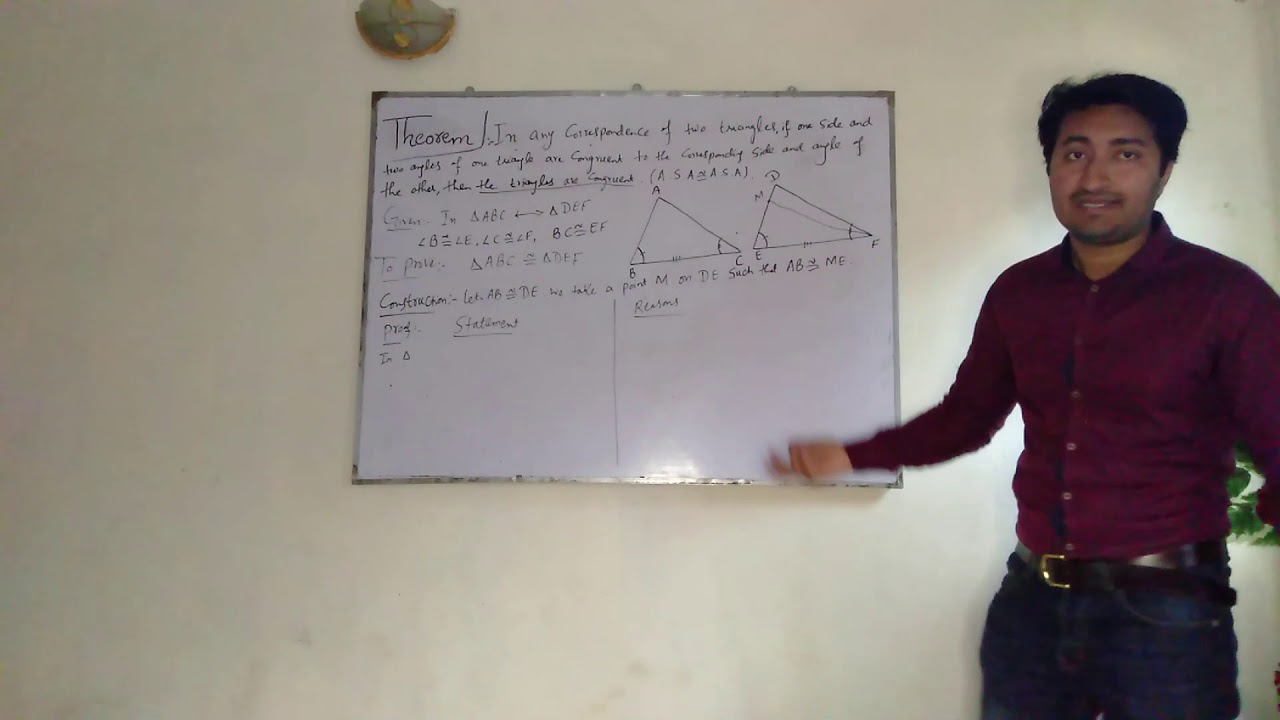 Theorem/:- In any Correspondence of two triangles, if one Side and
two angles of one triangle are Congruent to the Corresponding Side and angle of
the other, then the triangles are Congruent. (A S A ≅ A S A).
Given:- In △ABC ⟷ △DEF
∠B ≅ ∠E, ∠C ≅ ∠F, BC ≅ EF
To Prove:- △ABC ≅ △DEF
A
B
C
D
M
E
F
Construction:- Let AB ≅ DE we take a point M on DE Such that AB ≅ ME.
Proof:- Statement
Reasons
In △